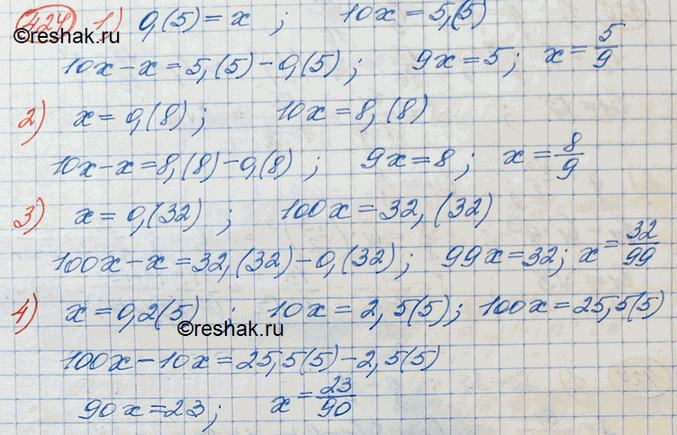 ©reshak.ru
424 1) 0,(5)=x ; 10x=5,(5)
10x-x=5,(5)-0,(5); 9x=5; x=5/9
2) x=0,(8); 10x=8,(8)
10x-x=8,(8)-0,(8); 9x=8; x=8/9
3) x=0,(32) ; 100x=32,(32)
100x-x=32,(32)-0,(32); 99x=32; x=32/99
4) x=0,2(5) ; 10x=2,5(5); 100x=25,5(5)
©reshak.ru
100x-10x=25,5(5)-2,5(5)
90x=23; x=23/90